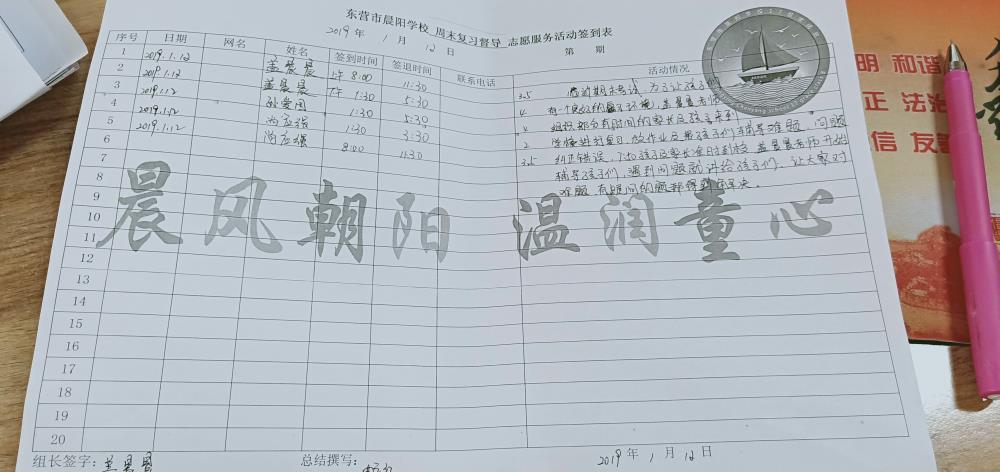 东营市晨阳学校 周末复习督导 志愿服务活动签到表
2019年 1 月 12 日 第 期
序号 日期 网名 姓名 签到时间 签退时间 联系电话 活动情况
1 2019.1.12 孟晨晨 8:00 11:30 3.5
2 2019.1.12 孟晨晨 1:30 5:30 4
3 2019.1.12 孙爱国 1:30 5:30 4
4 2019.1.12 尚应强 1:30 3:30 2
5 2019.1.12 尚应强 8:00 11:30 3.5
临近期末考试,为了让孩子
有一个良好的复习环境,孟晨晨老师
组织部分有时间的家长及孩子来到
学校进行复习,做作业及帮孩子们辅导难题,问题
纠正错误,
辅导孩子们,遇到问题就讲给孩子们,让大家对
难题
6
7
8
9
10
11
12
13
14
15
16
17
18
19
20
晨风朝阳 温润童心
组长签字: 孟晨晨 总结撰写: 2019 年 1 月 12 日
明 和谐
正 法治
信 友善